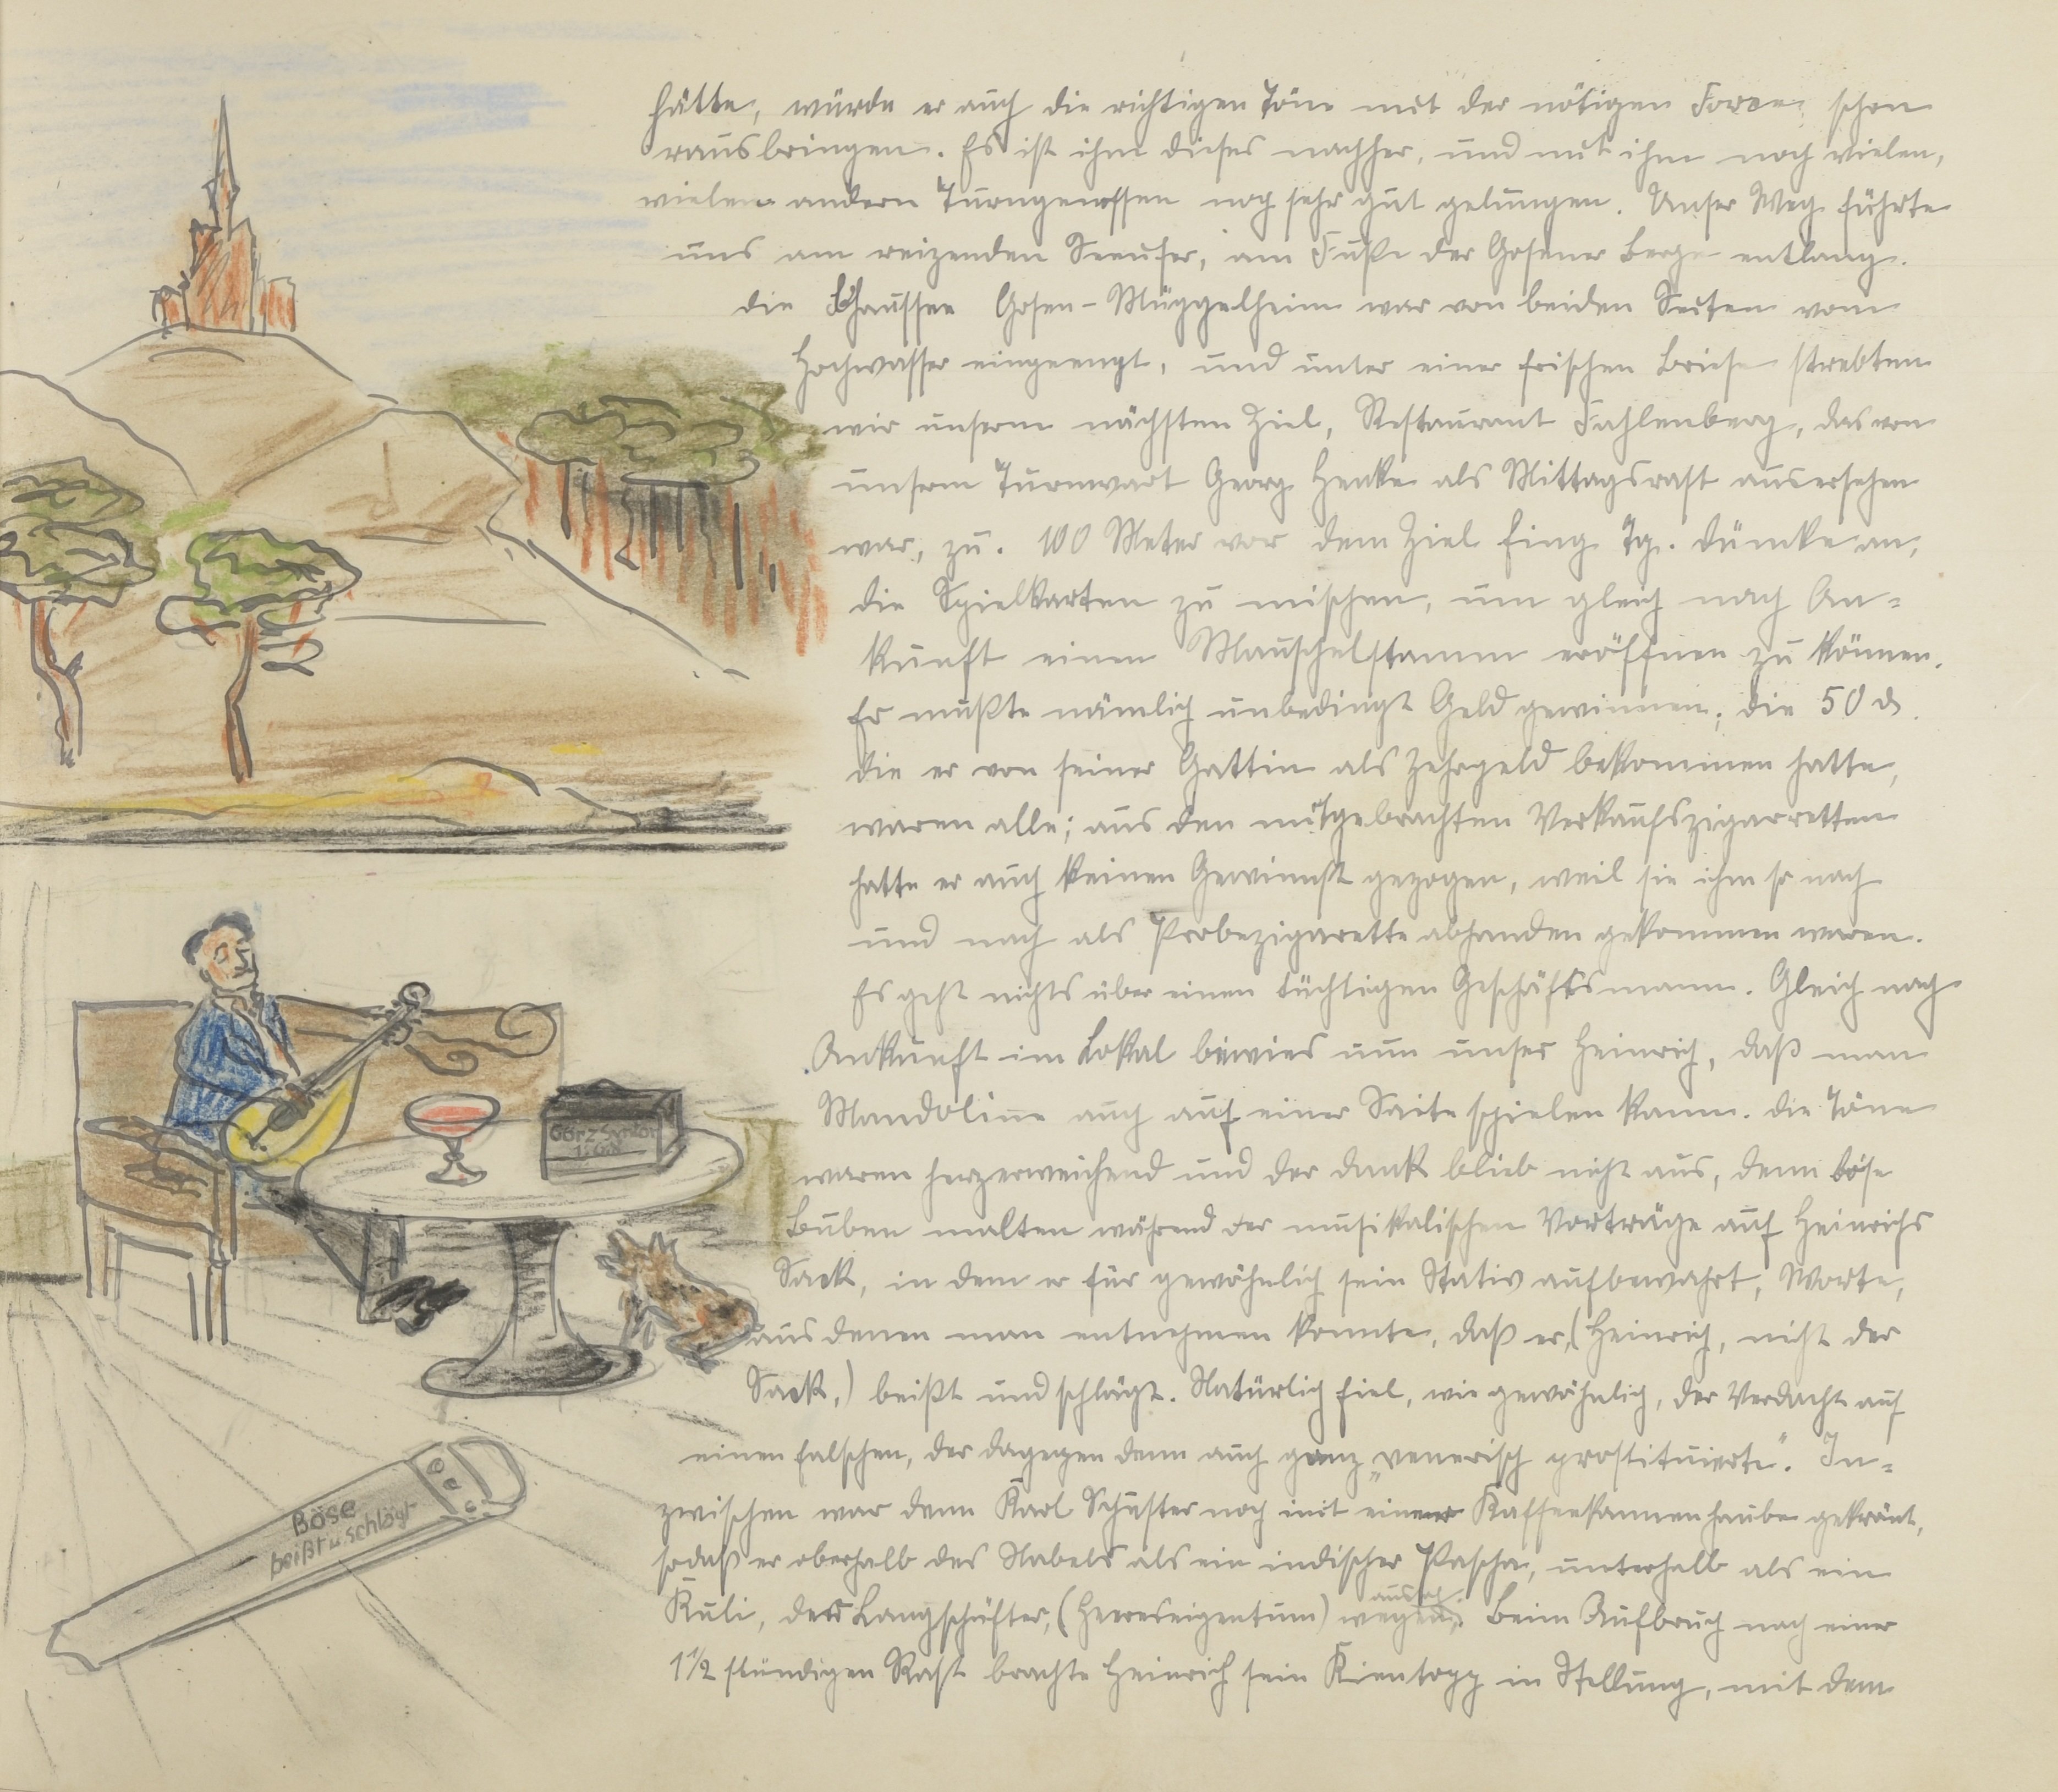 hätte, würde er auch die richtigen Töne mit der nötigen Force schon
rausbringen. Es ist ihm dieses nachher, und mit ihm noch vielen,
vielen andern Turngenossen noch sehr gut gelungen. Unser Weg führte
uns am reizenden Seeufer, am Fuße der Gosener Berge entlang.
die Chaussee Gosen-Müggelheim war von beiden Seiten vom
Hochwasser eingeengt, und unter einer frischen Briese strebten
wir unserm nächsten Ziel, Restaurant Fahlenberg, das von
unserm Turnwart Georg Henke als Mittagsrast ausersehen
war, zu. 100 Meter vor dem Ziel fing Tg. Dümke an,
die Spielkarten zu mischen, um gleich nach An-
kunft einen Mauschelstamm eröffnen zu können.
Er mußte nämlich unbedingt Geld gewinnen; die 50 ₰
die er von seiner Gattin als Zehrgeld bekommen hatte,
waren alle; aus den mitgebrachten Verkaufszigarretten
hatte er auch keinen Gewinnst gezogen, weil sie ihm so nach
und nach als Probezigarette abhanden gekommen waren.
Es geht nichts über einen tüchtigen Geschäftsmann. Gleich nach
Ankunft im Lokal bewies nun unser Heinrich, daß man
Mandoline auch auf einer Saite spielen kann. Die Töne
waren herzerweichend und der Dank blieb nicht aus, denn böse
Buben malten während der musikalischen Vorträge auf Heinrichs
Sack, in dem er für gewöhnlich sein Stativ aufbewahrt, Worte,
aus denen man entnehmen konnte, daß er, (Heinrich, nicht der
Sack,) beißt und schlägt. Natürlich fiel, wie gewöhnlich, der Verdacht auf
einen falschen, der dagegen denn auch ganz „venerisch prostituierte". In-
zwischen war denn Karl Schuster noch mit einer Kaffeekannenhaube gekrönt,
sodaß er oberhalb des Nabels als ein indischer Pascha, unterhalb als ein
Kuli, der Langschäfter, (Heereseigentum) wegen, aussah. Beim Aufbruch nach einer
1½ stündigen Rast brachte Heinrich sein Kientopp in Stellung, mit dem
Görz Syntor
1:6,8
Böse
beißt u. schlägt